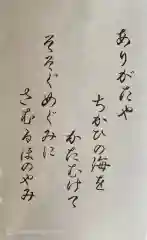 ありがたや
ちかひの海を
かたむけて
そそぐめぐみに
さむるほのやみ